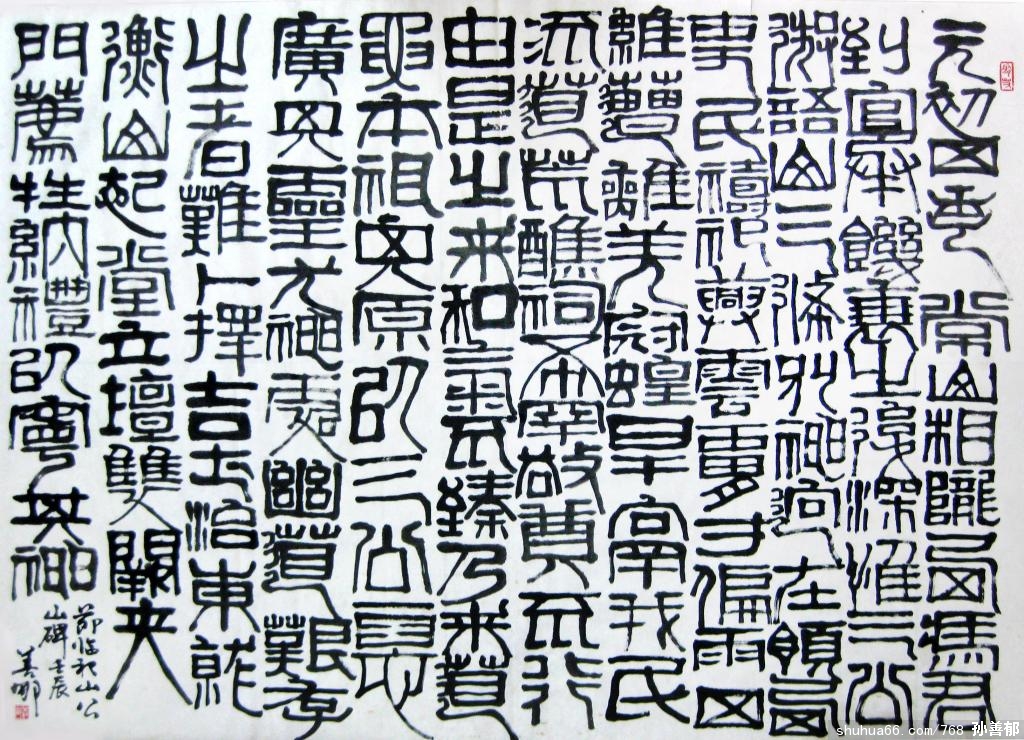 元初四年常山相隴西馮君
到官承饑衰之後深惟三公
御語山三條別神迥在領西
吏民禱祀興雲膚寸偏雨四
維遭離羌寇蝗旱鬲我民
流道荒醮祠希罕敬奠不行
由是之來和氣不臻乃來道
要本祖其原以三公德
廣其靈尤神處幽道艱存
之者難卜擇吉土治東就
衡山起堂立壇雙闕夾
門薦牲納禮以寧其神
節臨祀三公
山碑壬辰
善郁
shuhua66.com/768 孙善郁